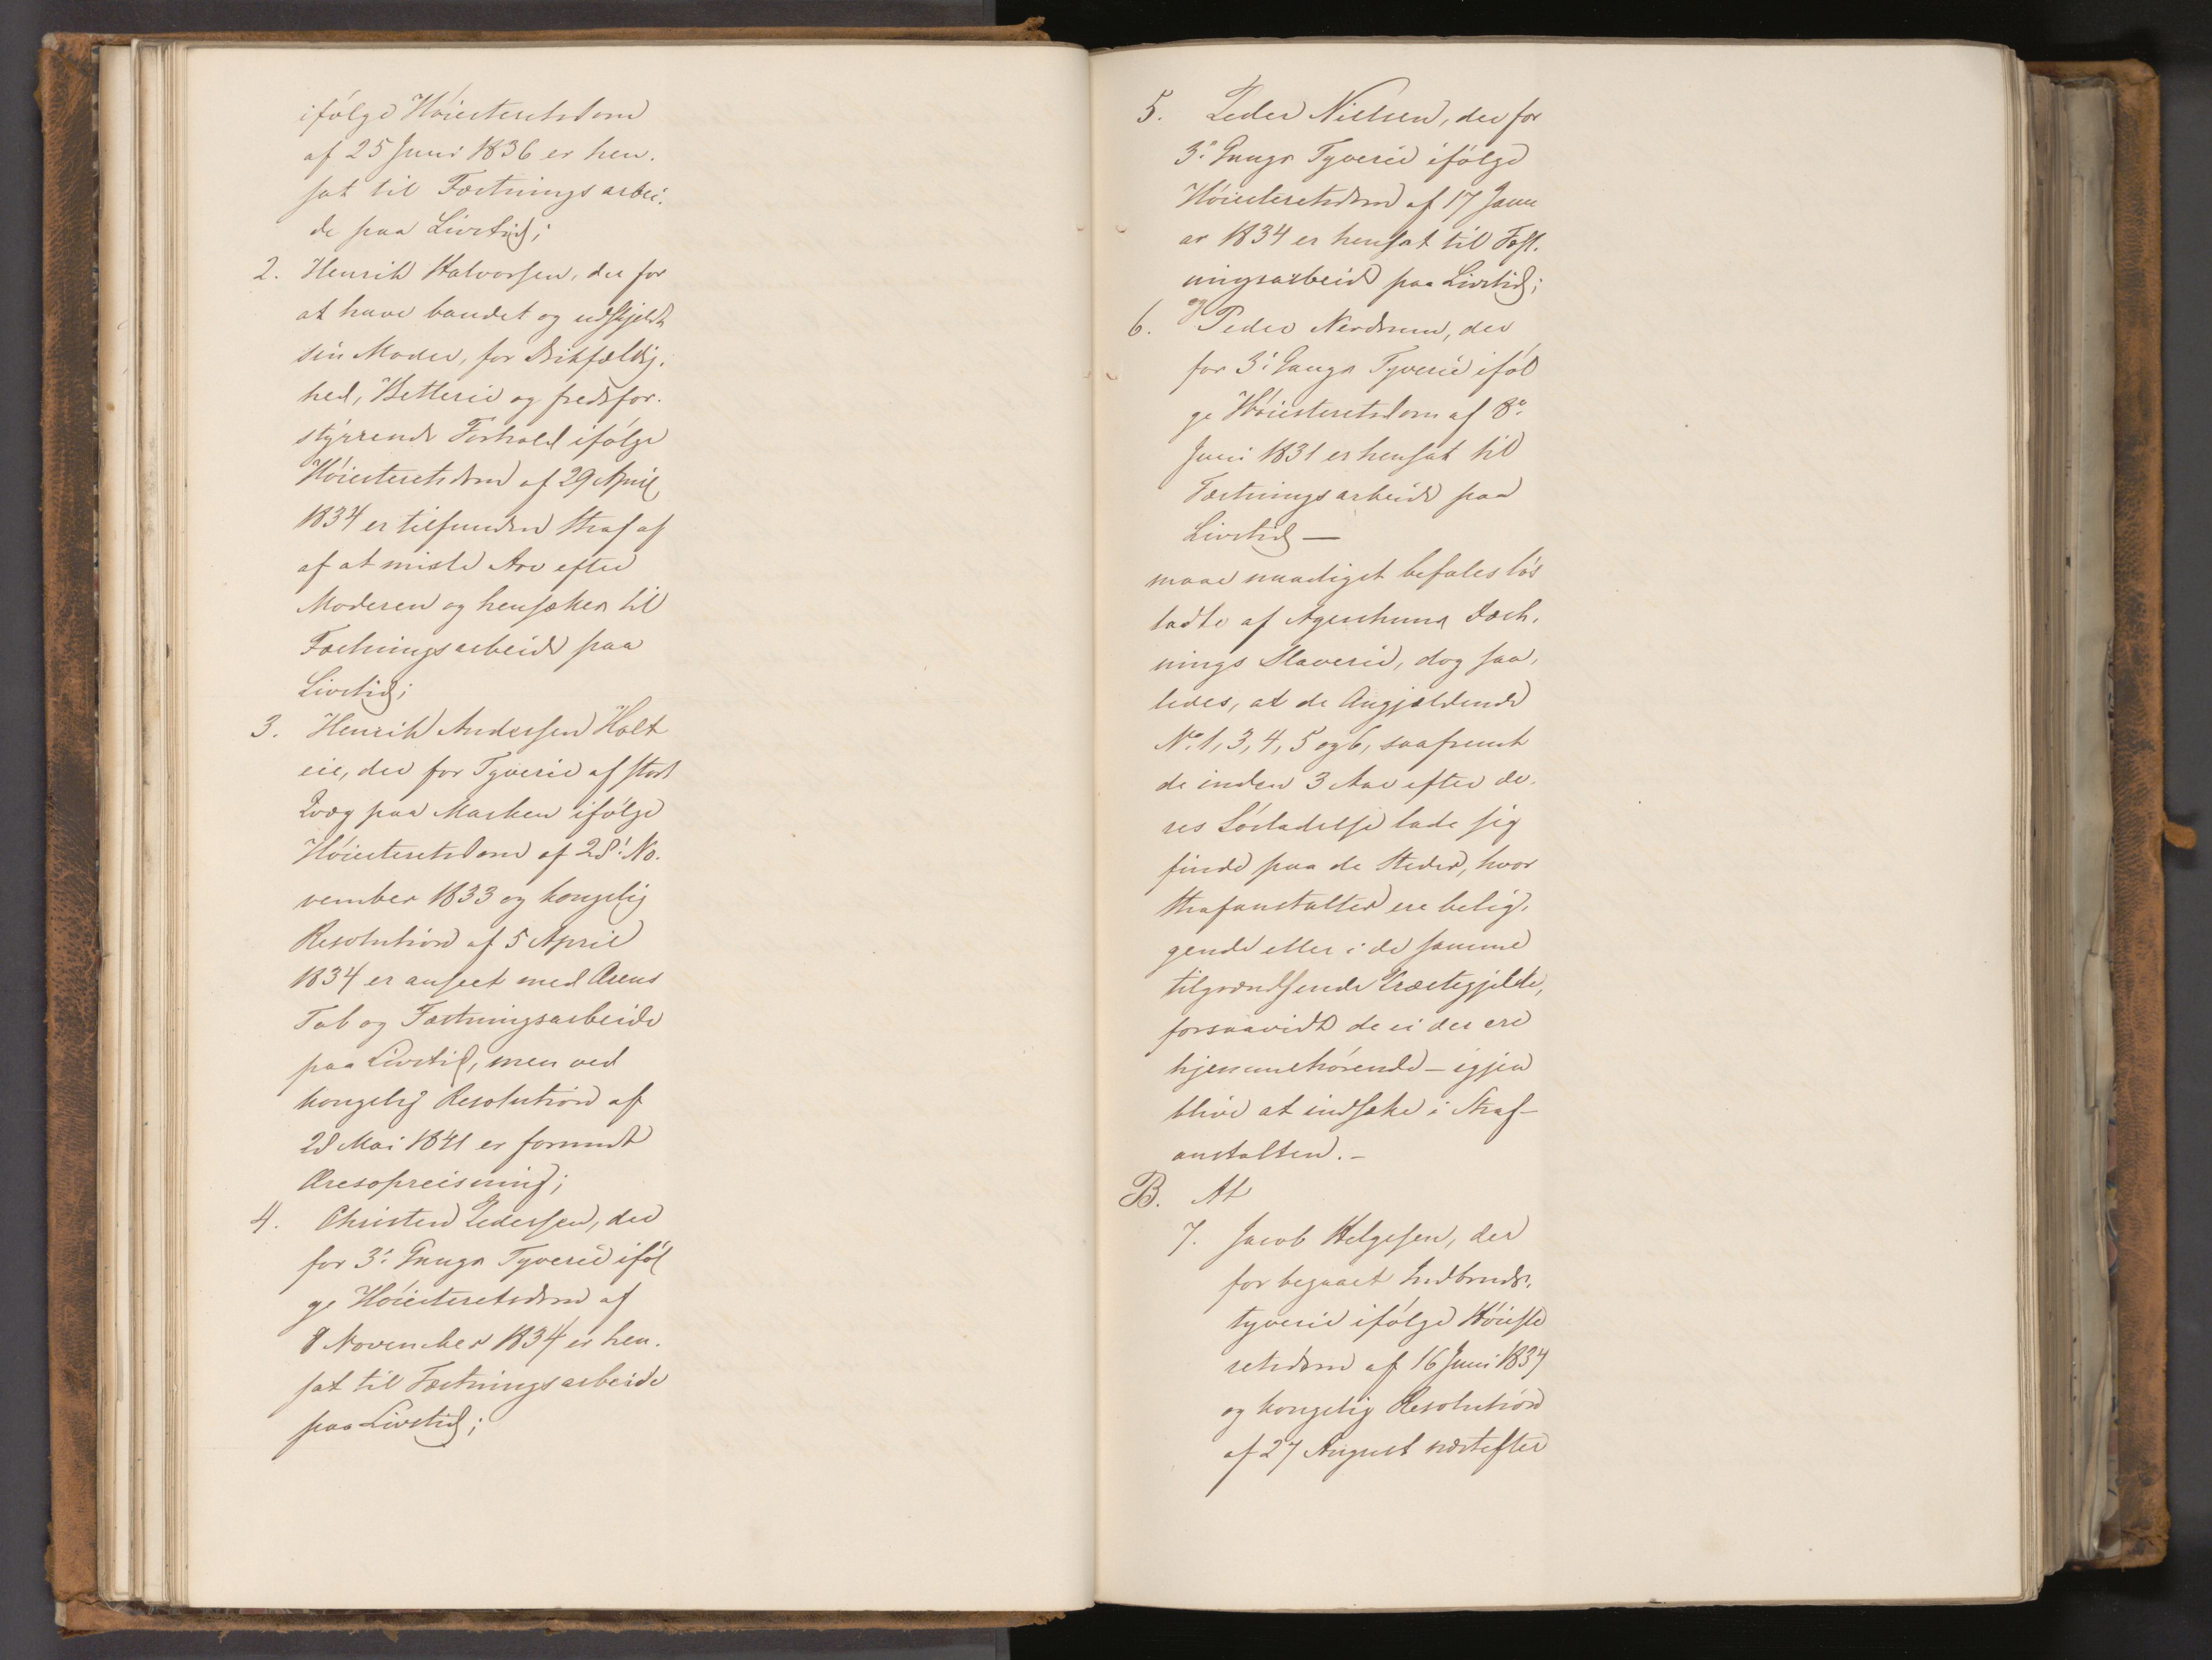 ifølge Høiesteretsdom
af 25 Juni 1836 er hen-
sat til Fæstningsarbei-
de paa Livstid;
2. Henrik Halvorsen, der for
at have bandet og udskjeldt
sin Moder, for Drikfældig-
hed, Betlerie og fredsfor-
styrrende Forhold ifølge
Høiesteretsdom af 29 April
1834 er tilfunden Straf af
af at miste Arv efter
Moderen og hensættes til
Fæstningsarbeide paa
Livstid;
3. Henrik Andersen Holt
eie, der for Tyverie af stort
Qvæg paa Marken ifølge
Høiesteretsdom af 28de No-
vember 1833 og kongelig
Resolution af 5 April
1834 er anseet med Ærens
Tab og Fæstningsarbeide
paa Livstid, men ved
kongelig Resolution af
28 Mai 1841 er forundt
Æresopreisning;
4. Christen Pedersen, der
for 3die Gangs Tyverie iføl
ge Høiesteretsdom af
8 November 1834 er hen-
sat til Fæstningsarbeide
paa Livstid;
5. Peder Nielsen, der for
3die Gangs Tyverie ifølge
Høiesteretsdom af 17 Janu
ar 1834 er hensat til Fæst-
ningsarbeide paa Livstid;
og
6. Peder Nerdrum, der
for 3die Gangs Tyverie iføl
ge Høiesteretsdom af 8de
Juni 1831 er hensat til
Fæstningsarbeide paa
Livstid —
maae naadigst befales løs
ladte af Agershuus Fæst-
nings Slaverie, dog saa-
ledes, at de Angjældende
No 1, 3, 4, 5 og 6, saafremt
de inden 3 Aar efter de-
res Løsladelse lade sig
finde paa de Steder, hvor
Strafanstalter ere belig-
gende eller i de samme
tilgrændsende Præstegjelde,
forsaavidt de ei der ere
hjemmehørende – igjen
blive at indsætte i Straf-
anstalten. –
B. At
7. Jacob Helgesen, der
for begaaet Indbruds-
tyverie ifølge Høieste
retsdom af 16 Juni 1834
og kongelig Resolution
af 27 August næstefter